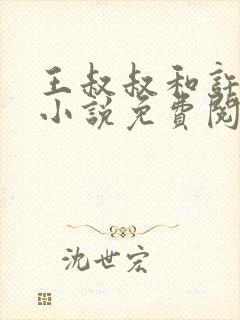 王叔叔和許
小說免費閱
沈世宏